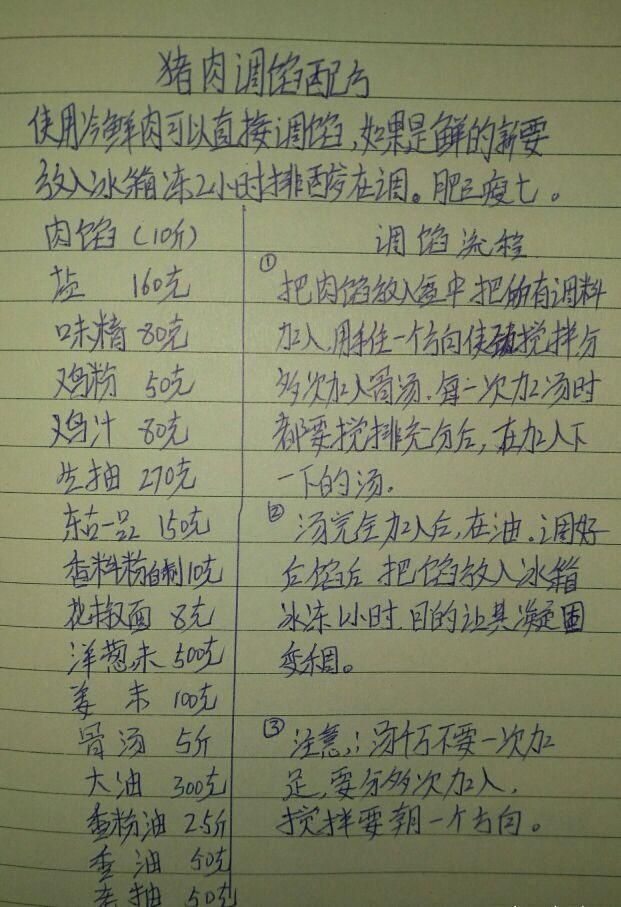 猪肉调馅配方
使用冷鲜肉可以直接调馅,如果是鲜的新要
放入冰箱冻2小时排酸在调。肥三瘦七。
肉馅(10斤)
盐 160克
味精 80克
鸡粉 50克
鸡汁 80克
生抽 270克
东古一品 150克
香料粉自制10克
花椒面 8克
洋葱末 500克
姜末 100克
骨汤 5斤
大油 300克
香粉油 2.5斤
香油 50克
老抽 50克
调馅流程
①
把肉馅放入盆中把所有调料
加入.用手住一个方向使劲搅拌分
多次加入骨汤.每一次加汤时
都要搅拌充分后,在加入下
一下的汤.
② 汤完全加入后,在油.调好
后馅后 把馅放入冰箱
冰冻1小时.目的让其凝固
变稠。
③ 注意:汤千万不要一次加
足,要分多次加入,
搅拌要朝一个方向。